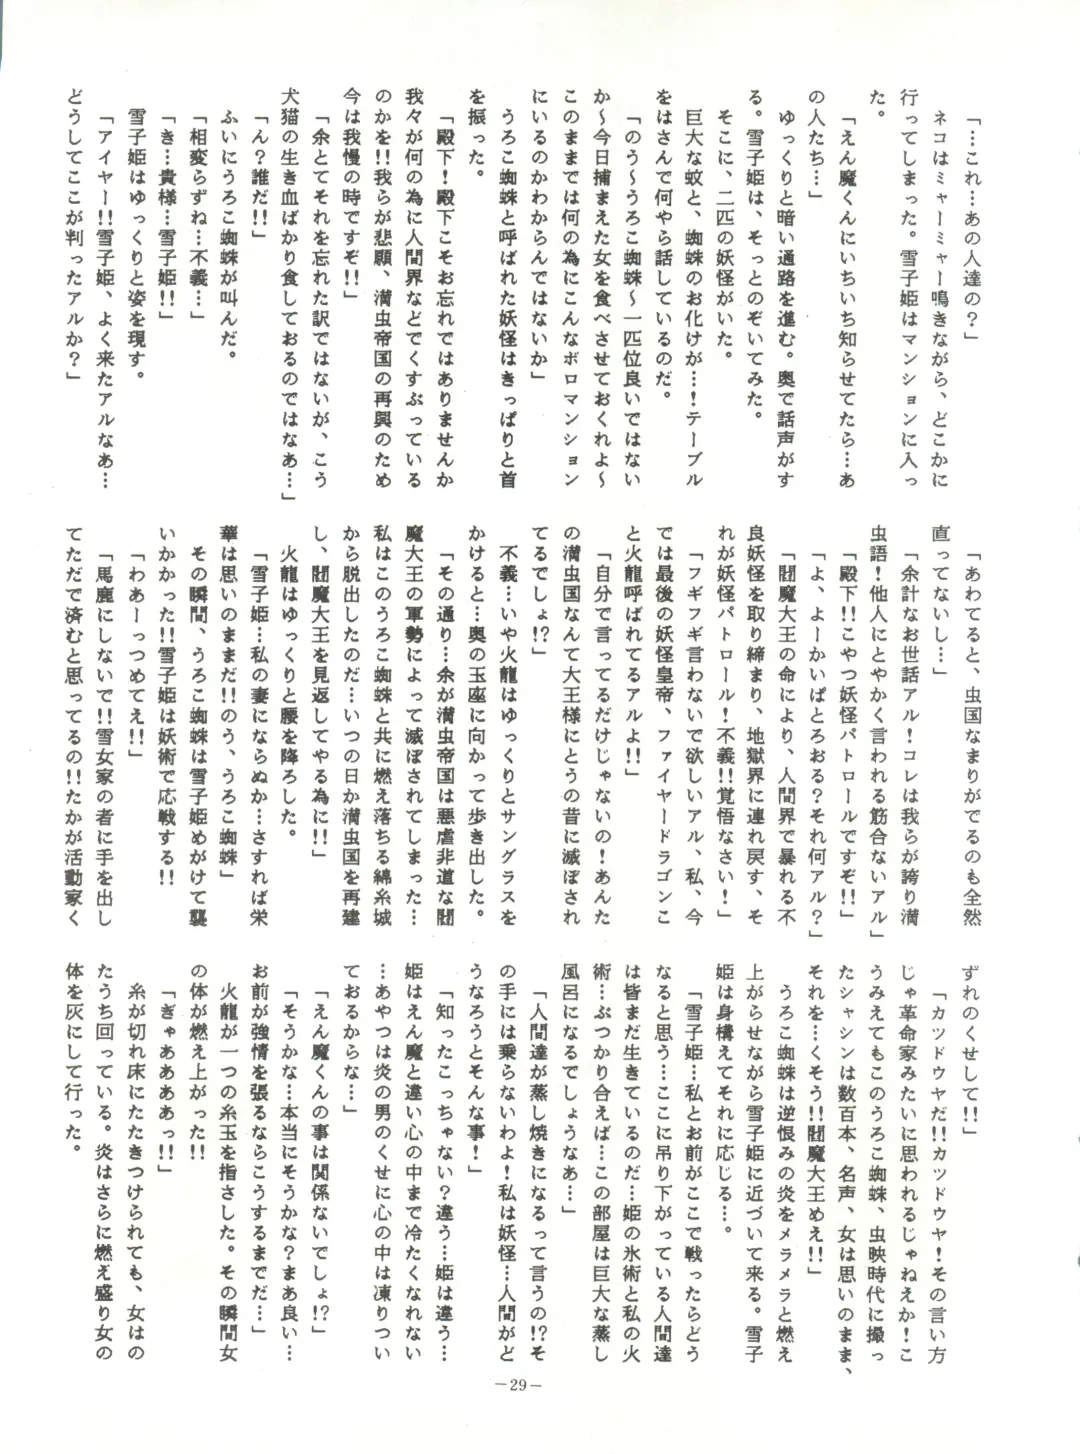 「…これ…あの人達の？」
ネコはミャーミャー鳴きながら、どこかに
行ってしまった。雪子姫はマンションに入っ
た。
「えん魔くんにいちいち知らせてたら…あ
の人たち…」
ゆっくりと暗い通路を進む。奥で話声がす
る。雪子姫は、そっとのぞいてみた。
そこに、二匹の妖怪がいた。
巨大な蚊と、蜘蛛のお化けが…！テーブル
をはさんで何やら話しているのだ。
「のう〜うろこ蜘蛛〜一匹位良いではない
か〜今日捕まえた女を食べさせておくれよ〜
このままでは何の為にこんなボロマンション
にいるのかわからんではないか」
うろこ蜘蛛と呼ばれた妖怪はきっぱりと首
を振った。
「殿下！殿下こそお忘れではありませんか
我々が何の為に人間界などでくすぶっている
のかを!!我らが悲願、満虫帝国の再興のため
今は我慢の時ですぞ!!」
「余とてそれを忘れた訳ではないが、こう
犬猫の生き血ばかり食しておるのではなあ…」
「ん？誰だ!!」
ふいにうろこ蜘蛛が叫んだ。
「相変らずね…不義…」
「き…貴様…雪子姫!!」
雪子姫はゆっくりと姿を現す。
「アイヤー!!雪子姫、よく来たアルなあ…
どうしてここが判ったアルか？」
「あわてると、虫国なまりがでるのも全然
直ってないし…」
「余計なお世話アル！コレは我らが誇り満
虫語！他人にとやかく言われる筋合ないアル」
「殿下!!こやつ妖怪パトロールですぞ!!」
「よ、よーかいぱとろおる？それ何アル？」
「閻魔大王の命により、人間界で暴れる不
良妖怪を取り締まり、地獄界に連れ戻す、そ
れが妖怪パトロール！不義!!覚悟なさい！」
「フギフギ言わないで欲しいアル、私、今
では最後の妖怪皇帝、ファイヤードラゴンこ
と火龍呼ばれてるアルよ!!」
「自分で言ってるだけじゃないの！あんた
の満虫国なんて大王様にとうの昔に滅ぼされ
てるでしょ!?」
不義…いや火龍はゆっくりとサングラスを
かけると…奥の玉座に向かって歩き出した。
「その通り…余が満虫帝国は悪虐非道な閻
魔大王の軍勢によって滅ぼされてしまった…
私はこのうろこ蜘蛛と共に燃え落ちる綿糸城
から脱出したのだ…いつの日か満虫国を再建
し、閻魔大王を見返してやる為に!!」
火龍はゆっくりと腰を降ろした。
「雪子姫…私の妻にならぬか…さすれば栄
華は思いのままだ!!のう、うろこ蜘蛛」
その瞬間、うろこ蜘蛛は雪子姫めがけて襲
いかかった!!雪子姫は妖術で応戦する!!
「わあーっつめてえ!!」
「馬鹿にしないで!!雪女家の者に手を出し
てただで済むと思ってるの!!たかが活動家く
ずれのくせして!!」
「カツドウヤだ!!カツドウヤ！その言い方
じゃ革命家みたいに思われるじゃねえか！こ
うみえてもこのうろこ蜘蛛、虫映時代に撮っ
たシャシンは数百本、名声、女は思いのまま、
それを…くそう!!閻魔大王めえ!!」
うろこ蜘蛛は逆恨みの炎をメラメラと燃え
上がらせながら雪子姫に近づいて来る。雪子
姫は身構えてそれに応じる…。
「雪子姫…私とお前がここで戦ったらどう
なると思う…ここに吊り下がっている人間達
は皆まだ生きているのだ…姫の氷術と私の火
術…ぶつかり合えば…この部屋は巨大な蒸し
風呂になるでしょうなあ…」
「人間達が蒸し焼きになるって言うの!?そ
の手には乗らないわよ！私は妖怪…人間がど
うなろうとそんな事！」
「知ったこっちゃない？違う…姫は違う…
姫はえん魔と違い心の中まで冷たくなれない
…あやつは炎の男のくせに心の中は凍りつい
ておるからな…」
「えん魔くんの事は関係ないでしょ!?」
「そうかな…本当にそうかな？まあ良い…
お前が強情を張るならこうするまでだ…」
火龍が一つの糸玉を指さした。その瞬間女
の体が燃え上がった!!
「ぎゃああああっ!!」
糸が切れ床にたたきつけられても、女はの
たうち回っている。炎はさらに燃え盛り女の
体を灰にして行った。
－29－